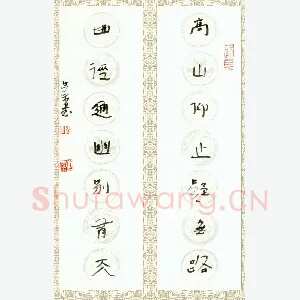 高山仰止疑無路
曲徑通幽別有天
Shufawang.CN